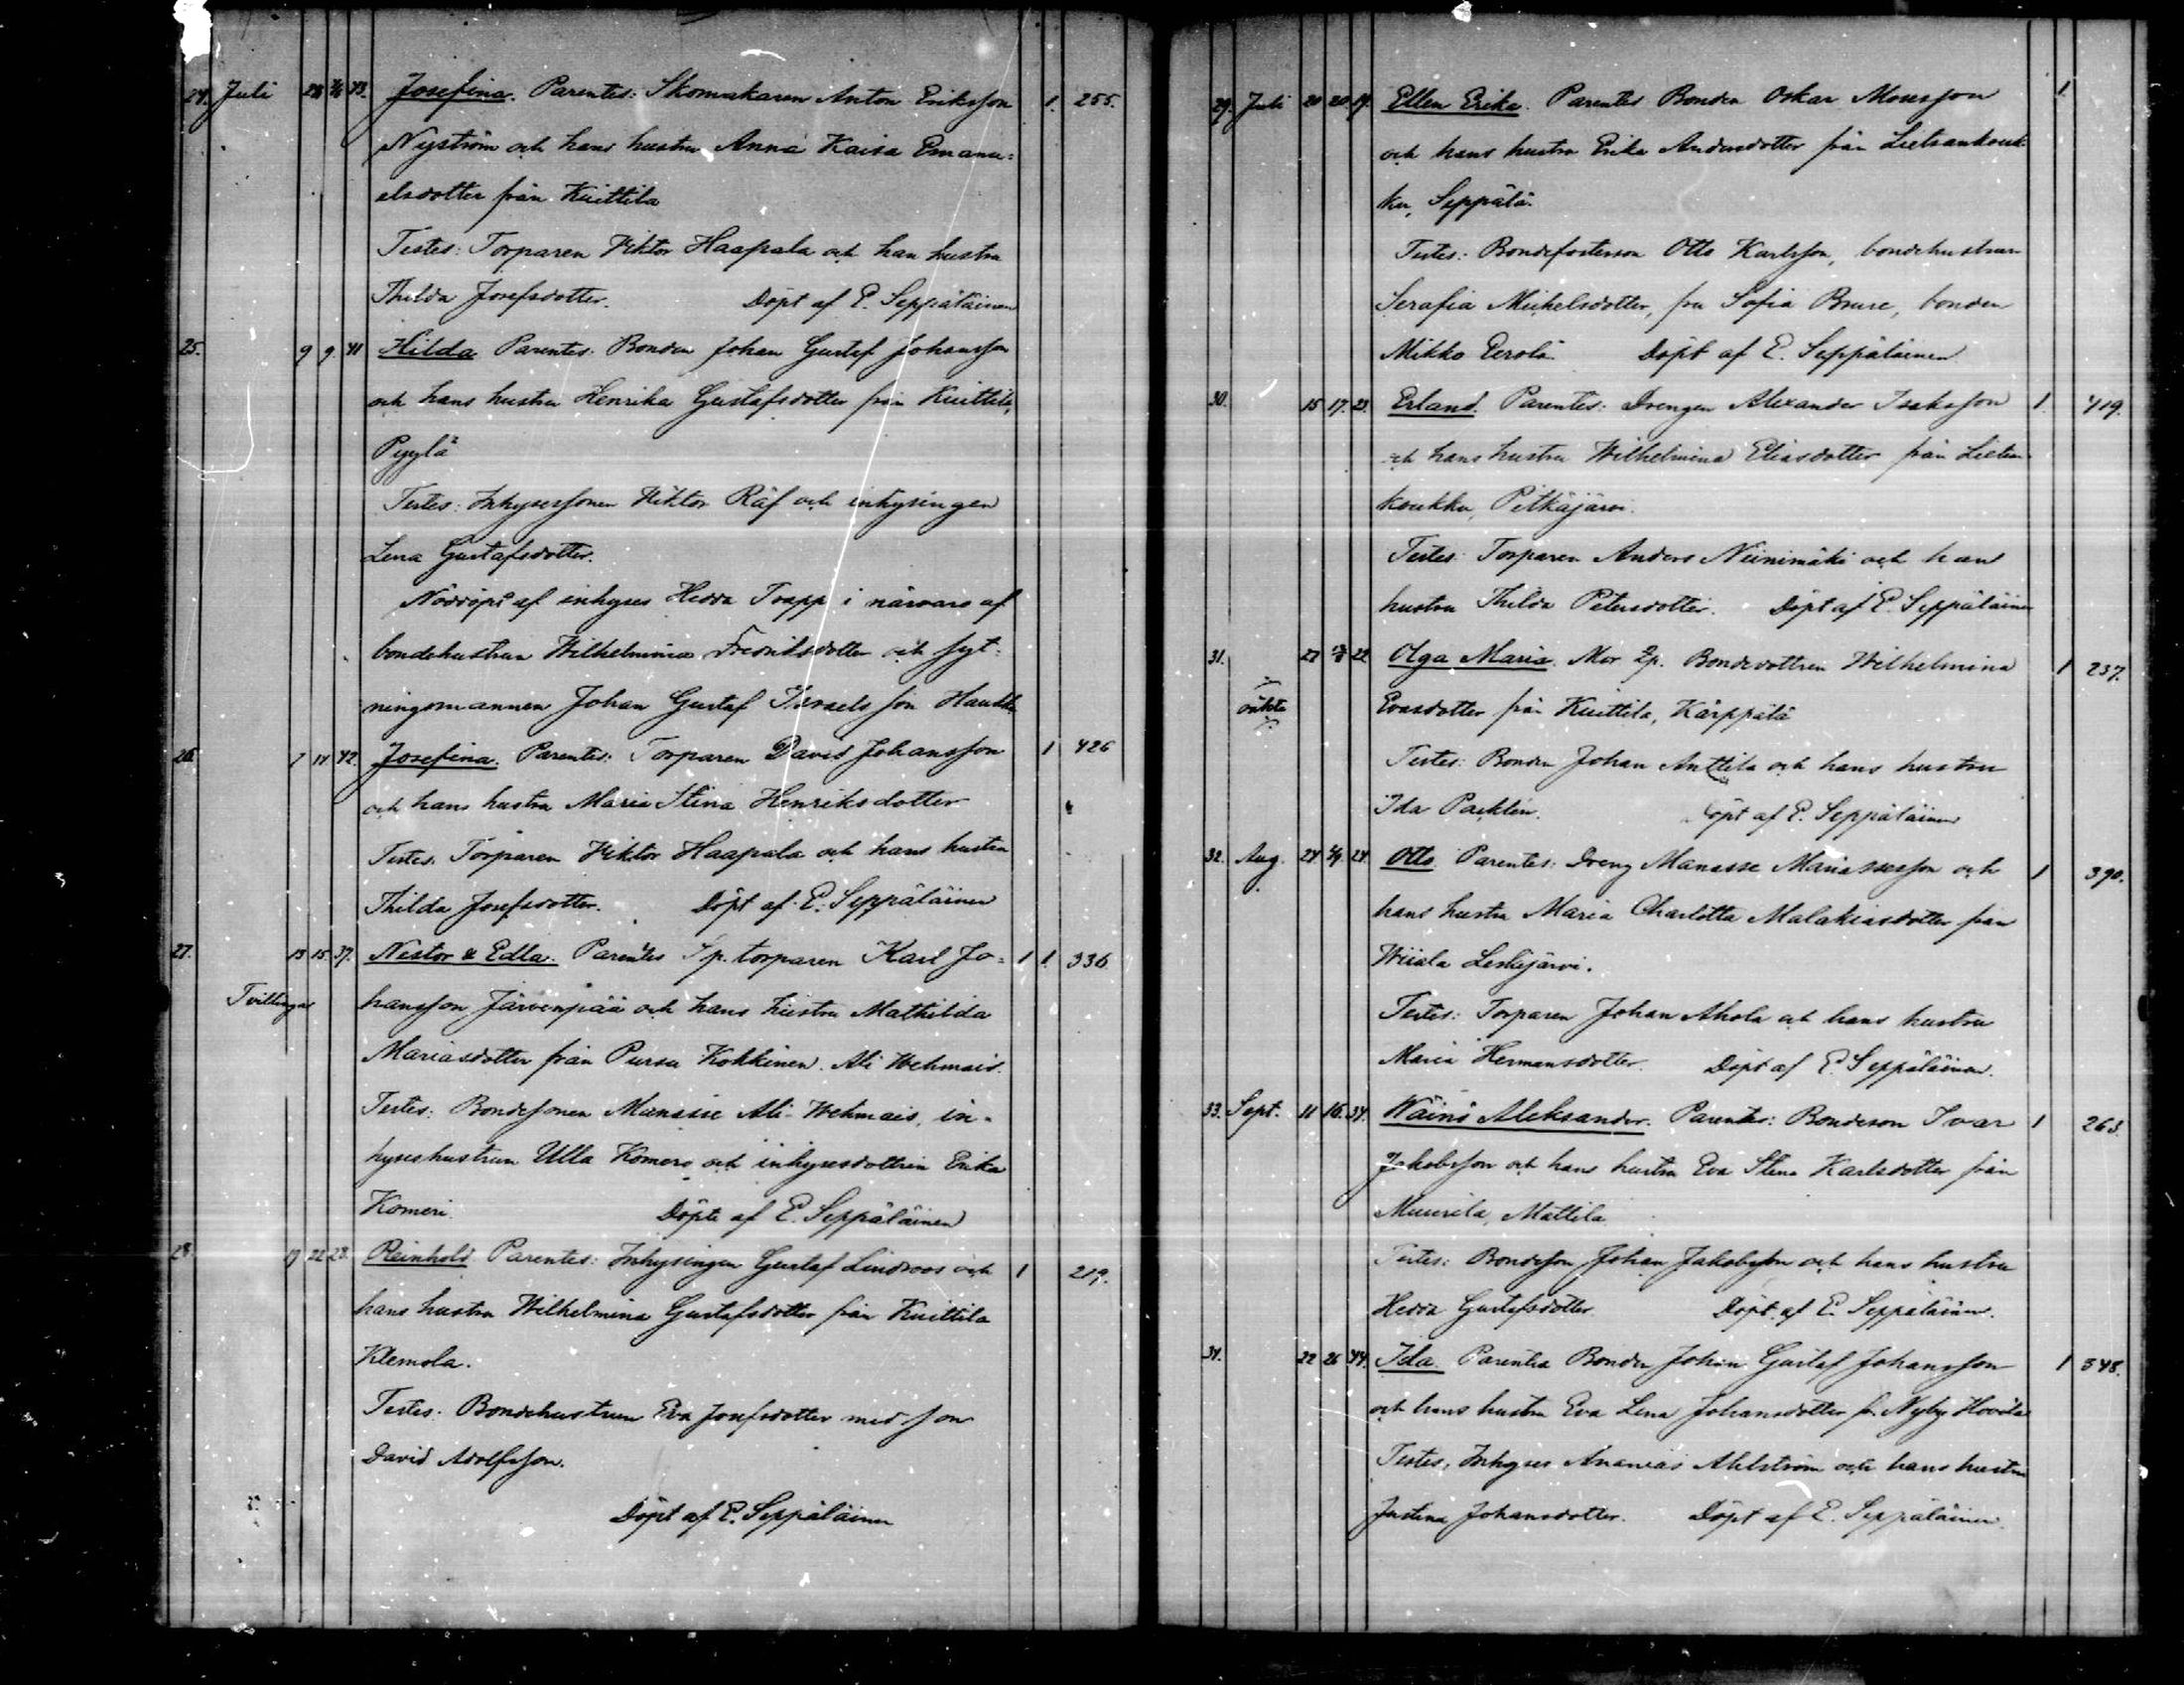 24. Juli 28 7/8 43. Josefina. Parentes: Skomakaren Anton Eriksson 1. 255.
Nyström och hans hustru Anna Kaisa Emanu-
elsdotter från Kuittila
Testes: Torparen Viktor Haapala och han hustru
Thilda Josefsdotter. Döpt af E. Seppäläinen
25. 9 9 41 Hilda Parentes: Bonden Johan Gustaf Johansson
och hans hustru Henrika Gustafsdotter från Kuittila,
Pyylä
Testes: Inhysessonen Viktor Räf och inhysingen
Lena Gustafsdotter.
Nöddöpt af inhyses Hedda Trapp i närvaro af
bondehustrun Wilhelmina Fredriksdotter och syt-
ningsmannen Johan Gustaf Israelsson
26. 7 11 42. Josefina. Parentes: Torparen David Johansson 1 426
och hans hustru Maria Stina Henriksdotter
Testes. Torparen Viktor Haapala och hans hustru
Thilda Josefsdotter. Döpt af E. Seppäläinen
27. 13 15 37. Nestor & Edla. Parentes Sp. torparen Karl Jo- 1 1. 336
Tvillingar hansson Järvenpää och hans hustru Mathilda
Mariasdotter från Pursu Kokkinen. Ali Wehmais.
Testes: Bondesonen Manasse Ali-Wehmais, in-
hyseshustrun Ulla Komero och inhysesdottren Erika
Komeri Döpte af E. Seppäläinen
28. 17 22 28. Reinhold Parentes: Inhysingen Gustaf Lindroos och 1 219.
hans hustru Wilhelmina Gustafsdotter från Kuittila
Klemola.
Testes. Bondehustrun Eva Josefsdotter med son
David Adolfsson.
Döpt af E. Seppäläinen
29. Juli 20 20 19. Ellen Erika. Parentes Bonden Oskar Mousson 1
och hans hustru Erika Andersdotter från Lietsankouk-
ku, Seppälä.
Testes: Bondefosterson Otto Karlsson, bondehustrun
Serafia Mickelsdotter, fru Sofia Brure, bonden
Mikko Eerola Döpt af E. Seppäläinen
30. 15 17. 23. Erland. Parentes: Drengen Alexander Isaksson 1. 419.
och hans hustru Wilhelmina Eliasdotter från
koukku, Pitkäjärvi.
Testes: Torparen Anders Niinimäki och hans
hustru Thilda Petersdotter. Döpt af E. Seppäläinen
31. 27 22 Olga Maria. Mor Lp. Bondedottren Wilhelmina 1 237.
oäkta Evasdotter från Kuittila, Kärppälä
Testes: Bonden Johan Anttila och hans hustru
Ida Packlén. Döpt af E. Seppäläinen
32. Aug. 24 24. Otto Parentes: Dreng Manasse Manassesson och 1 390.
hans hustru Maria Charlotta Malakiasdotter från
Wiiala Leskijärvi.
Testes: Torparen Johan Ahola och hans hustru
Maria Hermansdotter. Döpt af E. Seppäläinen.
33. Sept. 11 16. 34. Wäinö Aleksander. Parentes: Bondeson Ivar 1 263.
Jakobsson och hans hustru Eva Stina Karlsdotter från
Muurila, Mattila
Testes: Bondeson Johan Jakobsson och hans hustru
Hedda Gustafsdotter. Döpt af E. Seppäläinen.
34. 22 26 44. Ida. Parentes Bonden Johan Gustaf Johansson 1 348.
och hans hustru Eva Lena Johansdotter fr. Nyby Hovila
Testes: Inhyses Ananias Ahlström och hans hustru
Justina Johansdotter. Döpt af E. Seppäläinen.